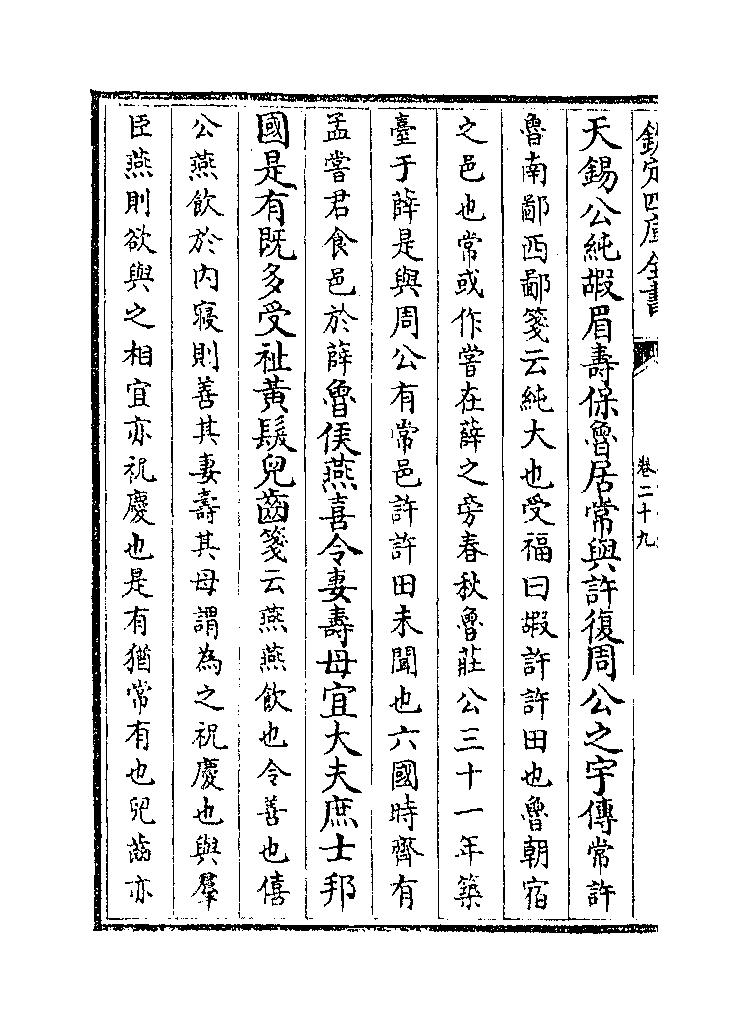 欽定四庫全書
卷二十九
天錫公純嘏眉壽保魯居常與許復周公之宇傳常許
魯南鄙西鄙箋云純大也受福曰嘏許許田也魯朝宿
之邑也常或作嘗在薛之旁春秋魯莊公三十一年築
臺于薛是與周公有常邑許許田未聞也六國時齊有
孟嘗君食邑於薛魯侯燕喜令妻壽母宜大夫庶士邦
國是有既多受祉黃髮兒齒箋云燕燕飲也令善也僖
公燕飲於內寢則善其妻壽其母謂為之祝慶也與羣
臣燕則欲與之相宜亦祝慶也是有猶常有也兒齒亦